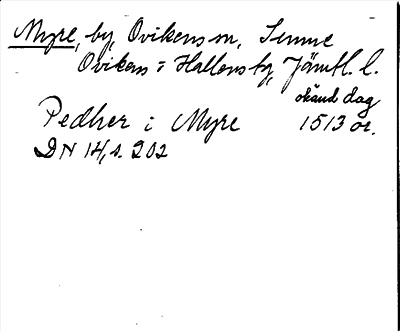 Myre, by, Ovikens sn, Sunne
Ovikens o Hallens tg, Jämtl. l.
okänd dag
Pedher i Myre 1513 or.
DN 14, s. 202